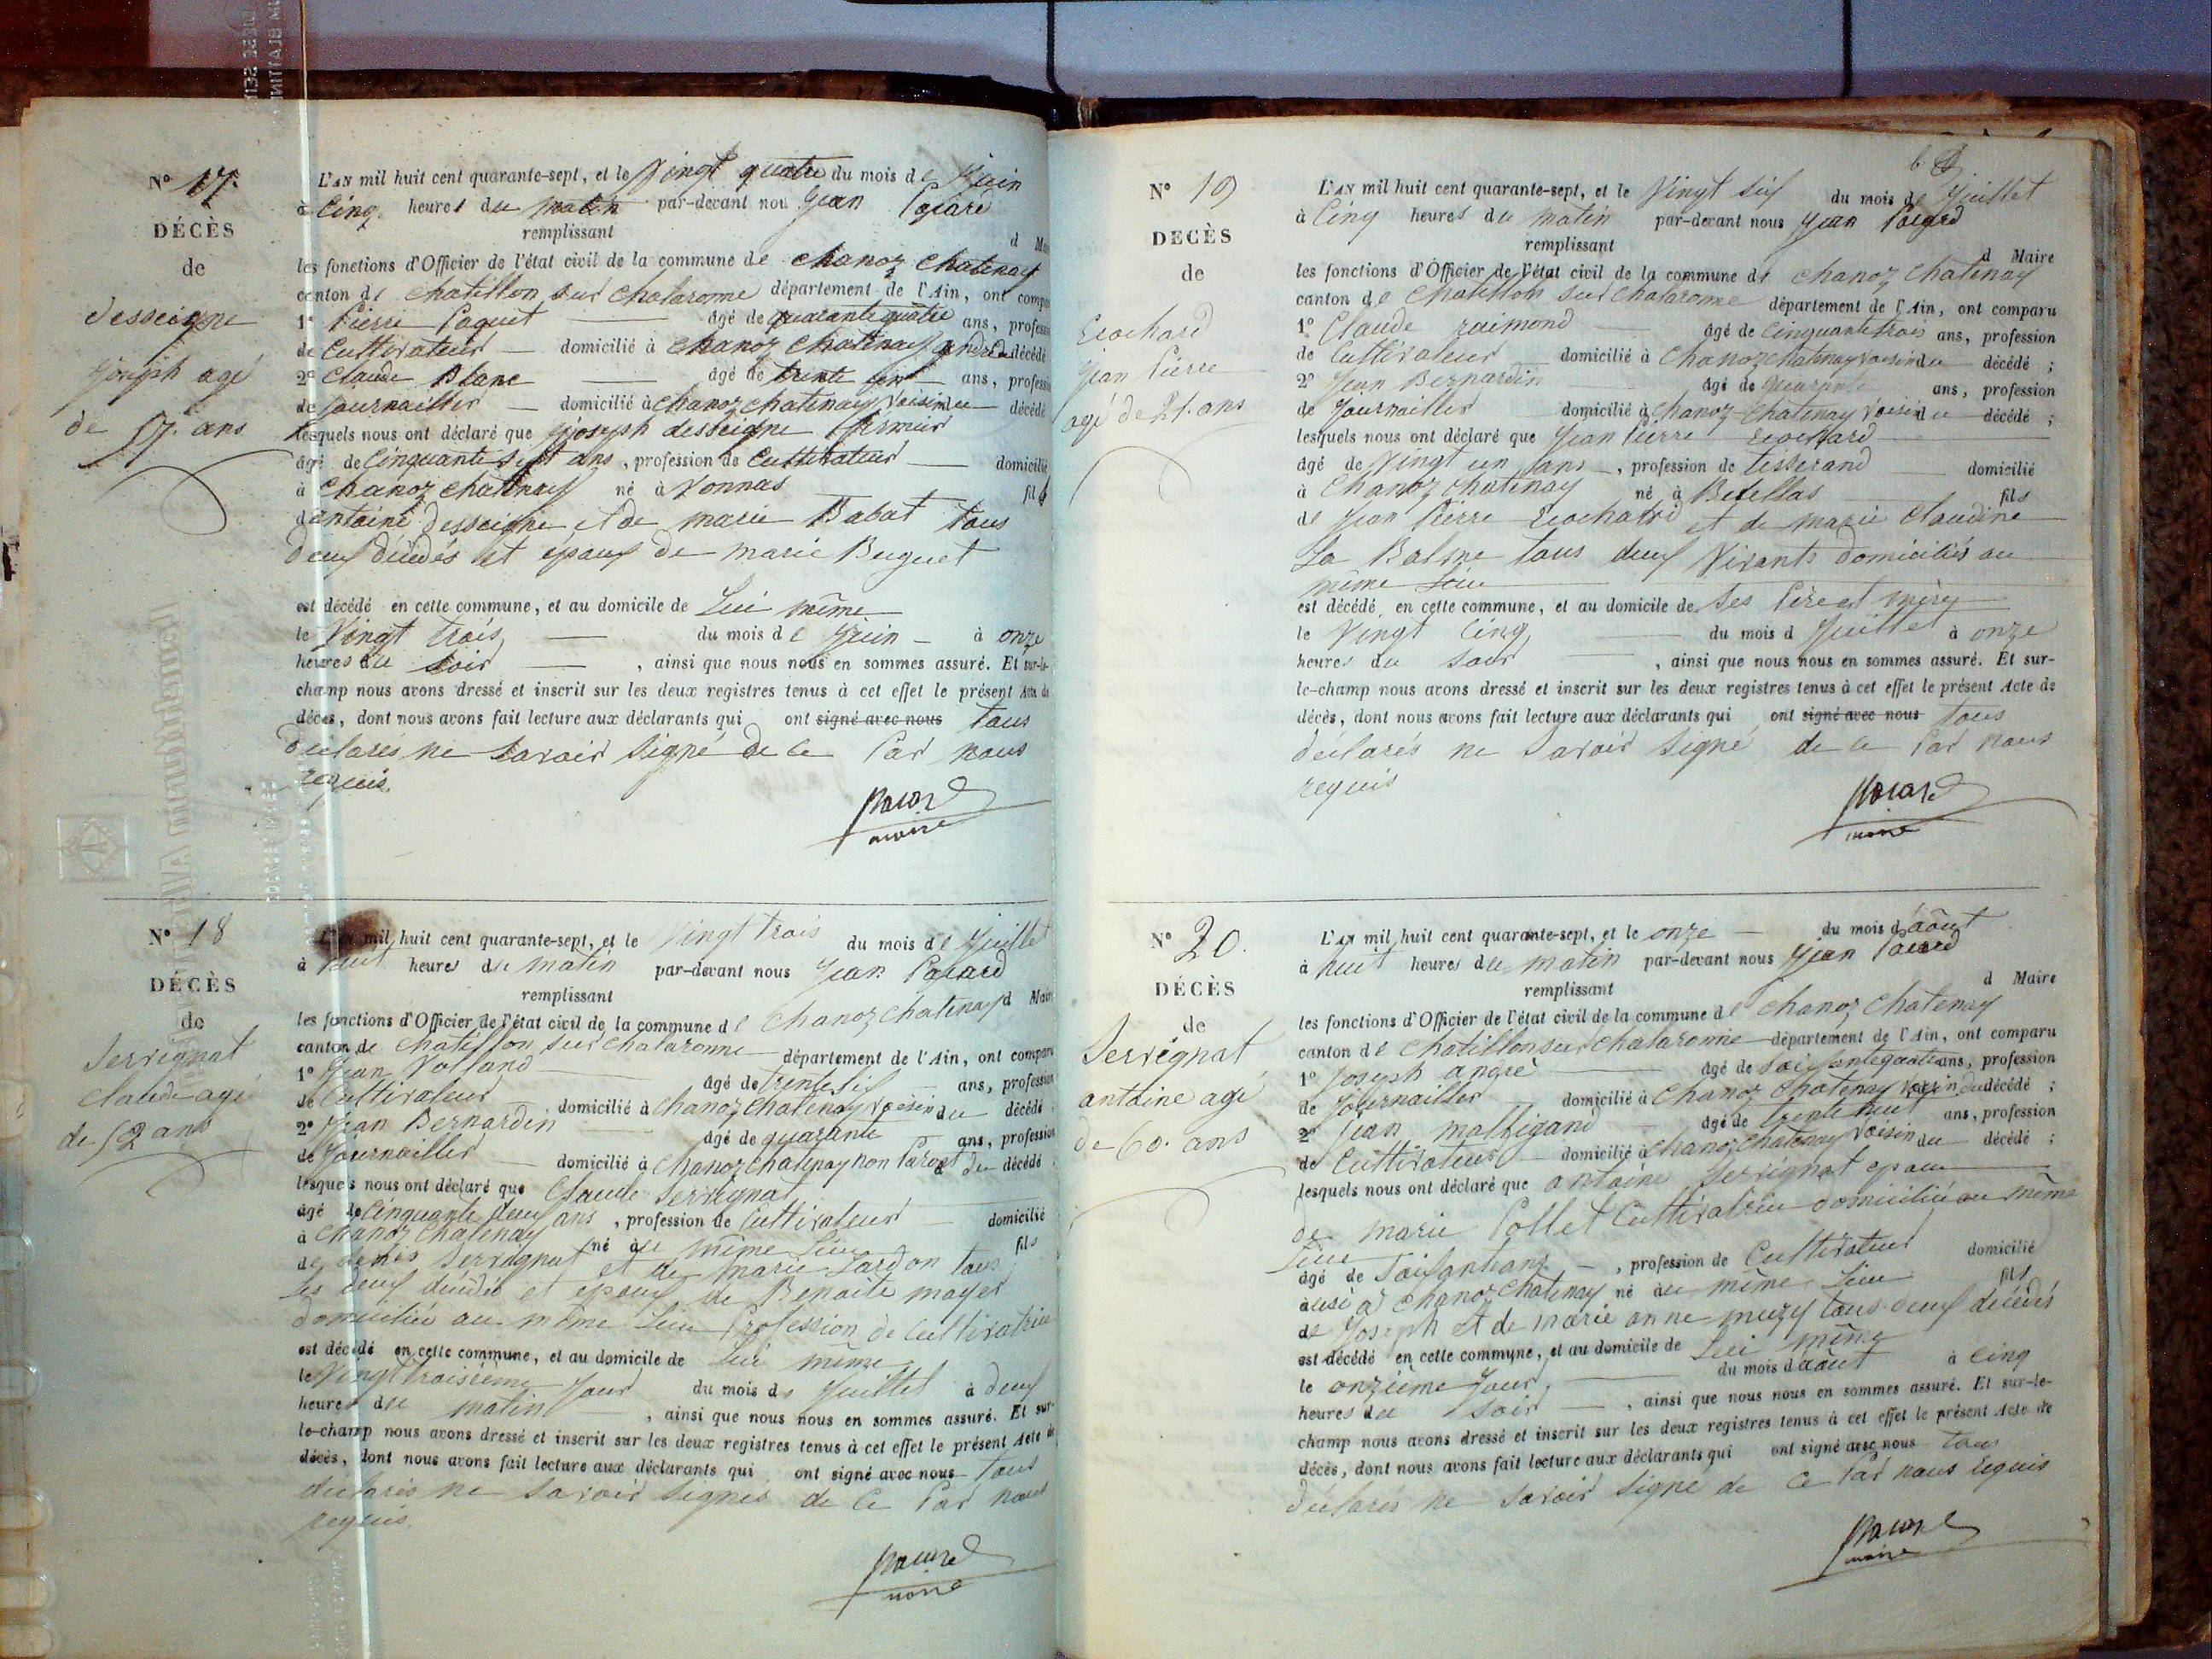 N° 17.
DÉCÈS
de
desseigne
joseph agé
de 57. ans
L'AN mil huit cent quarante-sept, et le Vingt quatre du mois de Juin
à Cinq heures du matin par-devant nous Jean Pacard
remplissant d Maire
les fonctions d'Officier de l'état civil de la commune de chanoz chatenay
canton de chatillon sur chalaronne département de l'Ain, ont comparu
1° Pierre Paquet agé de quarante quatre ans, profession
de Cultivateur domicilié à chanoz chatenay du décédé
2° Claude Blanc agé de trente ans, profession
de journaillier domicilié à chanoz chatenay Voisin du décédé
lesquels nous ont déclaré que joseph desseigne
âgé de Cinquante Sept ans, profession de Cultivateur domicilié
à chanoz chatenay né à Vonnas fils
d'antoine desseigne et de marie Babat tous
deux décédés et époux de marie Buguet
est décédé en cette commune, et au domicile de Lui même
le Vingt trois du mois de Juin à onze
heures du Soir, ainsi que nous nous en sommes assuré. Et sur-le-
champ nous avons dressé et inscrit sur les deux registres tenus à cet effet le présent Acte de
décès, dont nous avons fait lecture aux déclarants qui ont signé avec nous tous
déclarés ne Savoir Signé de ce Par nous
requis.
Pacard
maire
N° 18
DÉCÈS
de
Serrignat
claude agé
de 52 ans
L'AN mil huit cent quarante-sept, et le Vingt trois du mois de Juillet
à huit heures du matin par-devant nous Jean Pacard
remplissant d Maire
les fonctions d'Officier de l'état civil de la commune de chanoz chatenay
canton de chatillon sur chalaronne département de l'Ain, ont comparu
1° Jean Volland âgé de trente six ans, profession
de Cultivateur domicilié à chanoz chatenay voisin du décédé
2° Jean Bernardin âgé de quarante ans, profession
de Journaillier domicilié à chanoz chatenay non Parent du décédé
lesquels nous ont déclaré que Claude Serrignat
âgé de Cinquante deux ans, profession de Cultivateur domicilié
à chanoz chatenay né au même Lieu fils
de denis Serrignat et de marie Lardon tous
les deux décédés et epoux de Benoite mayer
domiciliée au même Lieu Profession de Cultivatrice
est décédé en cette commune, et au domicile de Lui même
le Vingt troisième Jour du mois de Juillet à deux
heures du matin, ainsi que nous nous en sommes assuré. Et sur-
le-champ nous avons dressé et inscrit sur les deux registres tenus à cet effet le présent Acte de
décès, dont nous avons fait lecture aux déclarants qui ont signé avec nous tous
déclarés ne Savoir Signer de ce Par nous
requis.
Pacard
maire
N° 19
DÉCÈS
de
Ecochard
jean Pierre
agé de 21. ans
L'AN mil huit cent quarante-sept, et le Vingt six du mois de Juillet
à Cinq heures du matin par-devant nous Jean Pacard
remplissant d Maire
les fonctions d'Officier de l'état civil de la commune de chanoz chatenay
canton de Chatillon sur chalaronne département de l'Ain, ont comparu
1° Claude raimond âgé de Cinquante trois ans, profession
de Cultivateur domicilié à Chanoz chatenay voisin du décédé ;
2° Jean Bernardin âgé de quarante ans, profession
de Journaillier domicilié à chanoz chatenay Voisin du décédé ;
lesquels nous ont déclaré que Jean Pierre Ecochard
âgé de Vingt un ans, profession de tisserand domicilié
à Chanoz chatenay né à fils
de Jean Pierre Ecochard et de marie claudine
La Balme tous deux Vivants domiciliés au
même Lieu
est décédé en cette commune, et au domicile de Ses Père et mère
le Vingt Cinq du mois d Juillet à onze
heures du Soir, ainsi que nous nous en sommes assuré. Et sur-
le-champ nous avons dressé et inscrit sur les deux registres tenus à cet effet le présent Acte de
décès, dont nous avons fait lecture aux déclarants qui ont signé avec nous tous
déclarés ne Savoir Signé de ce Par nous
requis
Pacard
maire
N° 20.
DÉCÈS
de
Serrignat
antoine agé
de 60. ans
L'AN mil huit cent quarante-sept, et le onze du mois d'août
à huit heures du matin par-devant nous Jean Pacard
remplissant d Maire
les fonctions d'Officier de l'état civil de la commune de chanoz chatenay
canton de Chatillon sur chalaronne département de l'Ain, ont comparu
1° Joseph andré âgé de Soissante quatre ans, profession
de Journaillier domicilié à Chanoz chatenay voisin du décédé ;
2° Jean malligand âgé de trente huit ans, profession
de Cultivateur domicilié à chanoz chatenay Voisin du décédé ;
lesquels nous ont déclaré que antoine Serrignat epoux
de marie Pollet Cultivatrice domiciliée au même
Lieu
âgé de Soissante ans, profession de Cultivateur domicilié
aussi à chanoz chatenay né au même Lieu fils
de Joseph et de marie anne muzy tous deux décédés
est décédé en cette commune, et au domicile de Lui même
le onzième Jour du mois d'août à Cinq
heures du Soir, ainsi que nous nous en sommes assuré. Et sur-le-
champ nous avons dressé et inscrit sur les deux registres tenus à cet effet le présent Acte de
décès, dont nous avons fait lecture aux déclarants qui ont signé avec nous tous
déclarés ne Savoir Signé de ce Par nous requis
Pacard
maire